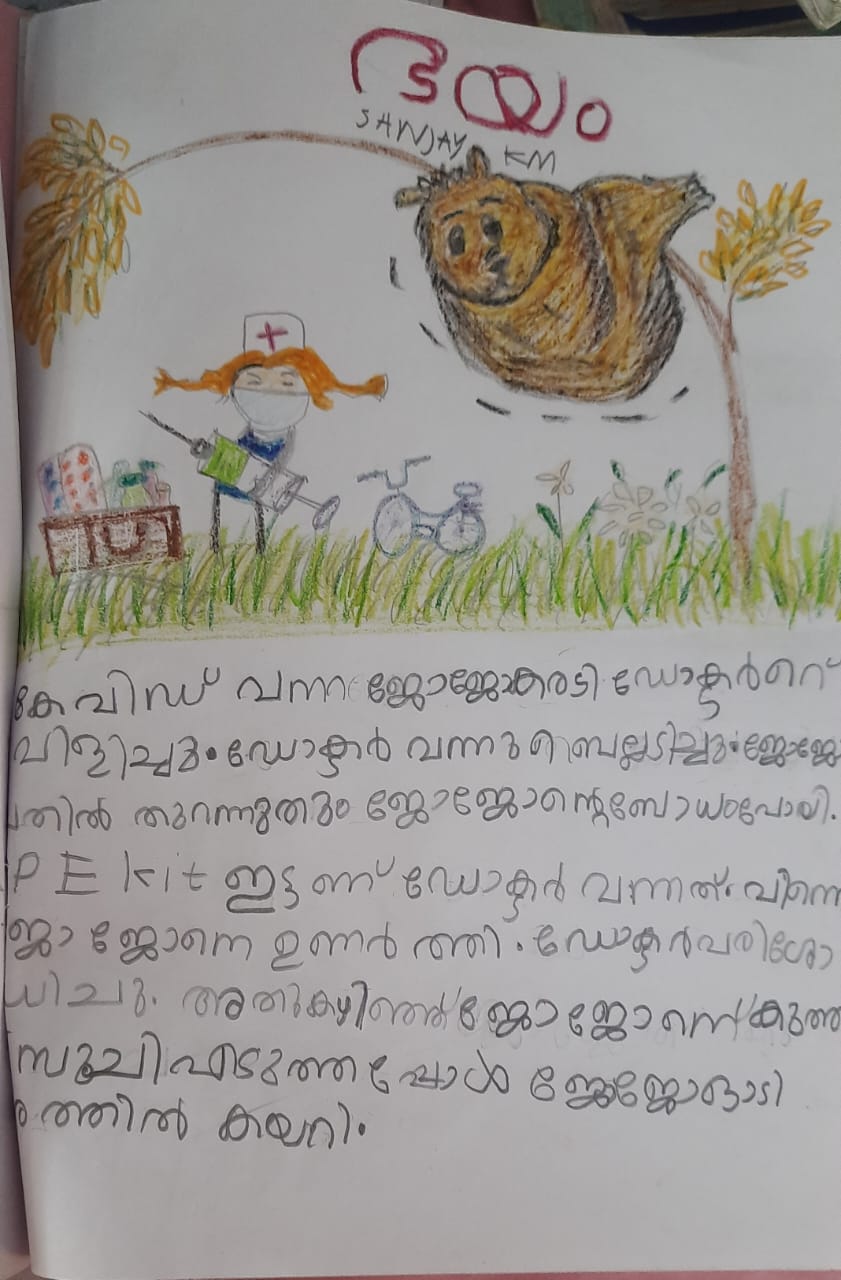 ഭയം
SANJAY KM
കേവിഡ് വന്ന ജോജോകരടി ഡോക്ടർറെ
വിളിച്ചു. ഡോക്ടർ വന്നു ബെല്ലടിച്ചു. ജോജോ
തിൽ തുറന്നുതും ജോജോന്റെ ബോധംപോയി.
PE kit ഇട്ടണ് ഡോക്ടർ വന്നത്. പിന്നെ
ജോജോനെ ഉണർത്തി. ഡോക്ടർ പരിശോ
ധിച്ചു. അതുകഴിഞ്ഞ് ജോജോനെ കുത്ത
സൂചി എടുത്തപ്പോൾ ജോജോഓടി
ത്തിൽ കയറി.